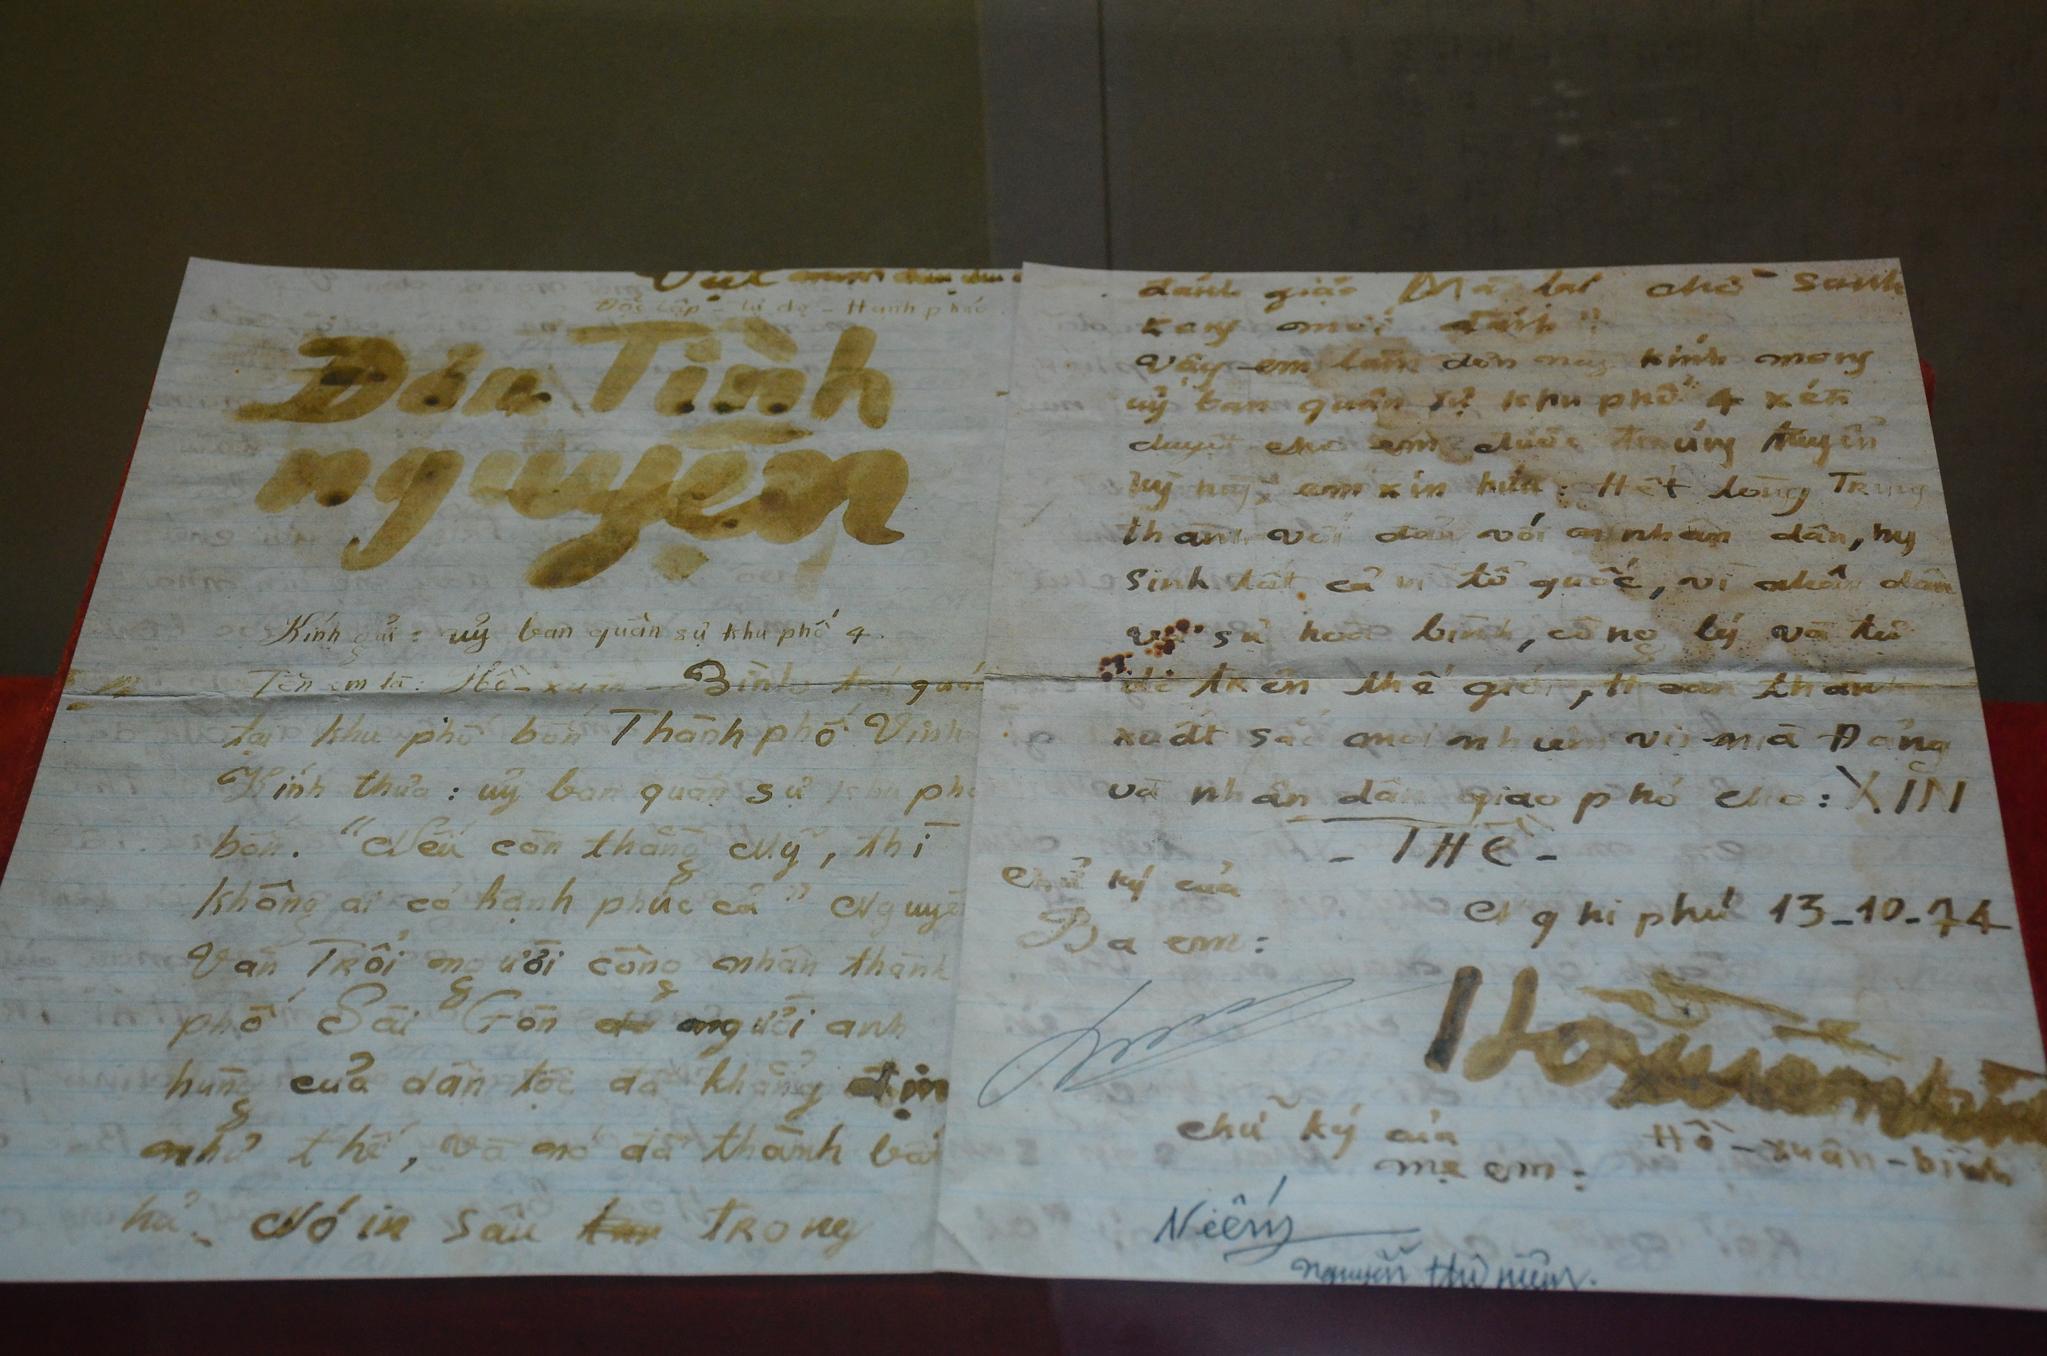 Độc lập - tự do - Hạnh phúc
Đơn Tình
nguyện
Kính gửi: uỷ ban quân sự khu phố 4.
Tên em là: Hồ-xuân-Bình trú quán
tại khu phố bốn Thành phố Vinh
Kính thưa: uỷ ban quân sự khu phố
bốn. "Nếu còn thằng Mỹ, thì
không ai có hạnh phúc cả" Nguyễ
Văn Trỗi người công nhân thành
phố Sài Gòn người anh
hùng của dân tộc đã khẳng định
như thế, và nó đã thành bất
hủ. Nó in sâu trong
đánh giặc
mới đánh"
Vậy em làm đơn này kính mong
uỷ ban quân sự khu phố 4 xét
duyệt cho em được trúng tuyển
kỳ này em xin hứa: Hết lòng Trung
thành với đản với nhân dân, hy
sinh tất cả vì tổ quốc, vì nhân dân
vì sự hoà bình, công lý và tự
do trên thế giới, Hoàn thành
xuất sắc mọi nhưm vụ mà Đảng
và nhân dân giao phó cho: XIN
- THỀ -
Chữ ký của
Ba em:
Nghi phú 13-10-74
Hồ xuân bình
Hồ-xuân-bình
chữ ký của
mẹ em:
Niêm
nguyễn thị niêm.